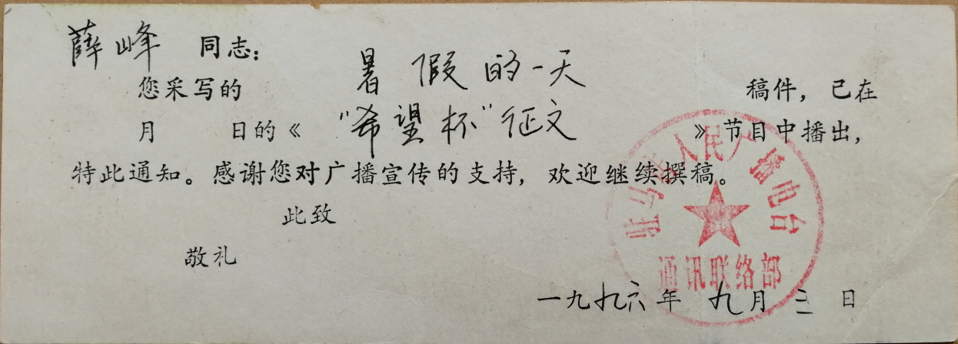 薛峰 同志：
您采写的 暑假的一天 稿件，已在
月 日的《 "希望杯"征文 》节目中播出，
特此通知。感谢您对广播宣传的支持，欢迎继续撰稿。
此致
敬礼
驻马店人民广播电台
通讯联络部
一九九六年九月三日